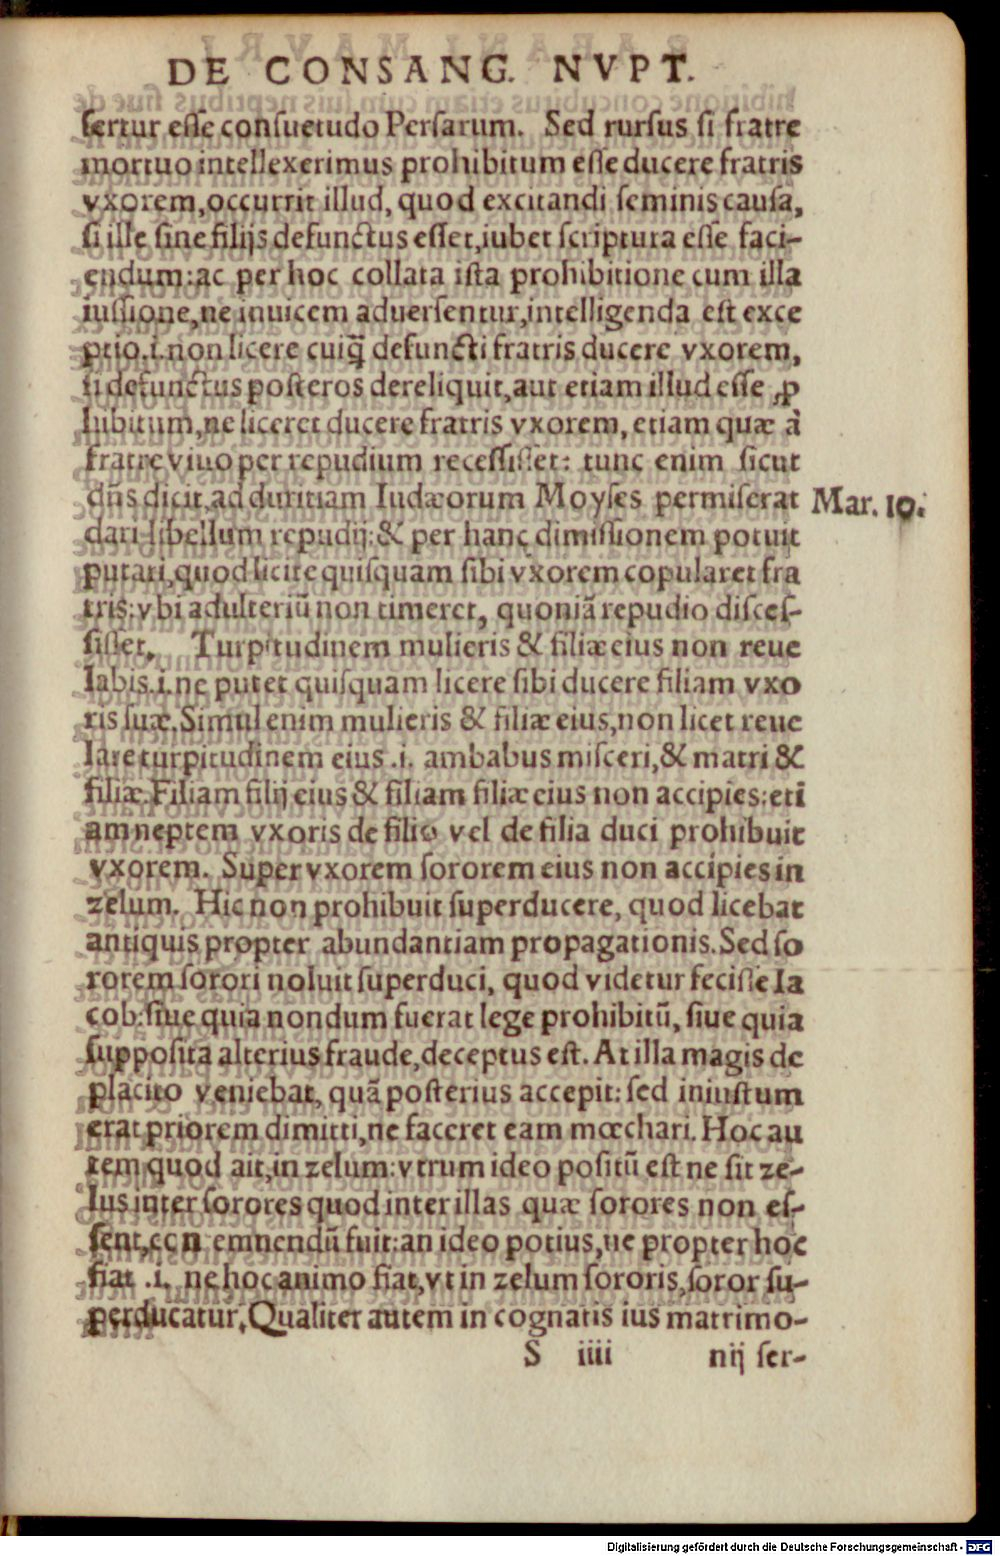 DE CONSANG. NVPT.
fertur esse consuetudo Persarum. Sed rursus si fratre
mortuo intellexerimus prohibitum esse ducere fratris
vxorem, occurrit illud, quod excitandi seminis causa,
si ille sine filijs defunctus esset, iubet scriptura esse faci-
endum: ac per hoc collata ista prohibitione cum illa
iussione, ne inuicem aduersentur, intelligenda est exce
ptio .i. non licere cuiq̃ defuncti fratris ducere vxorem,
si defunctus posteros dereliquit, aut etiam illud esse ꝓ
hibitum, ne liceret ducere fratris vxorem, etiam quæ à
fratre viuo per repudium recessisset: tunc enim sicut
dñs dicit, ad duritiam Iudæorum Moyses permiserat
Mar. 10.
dari libellum repudij: & per hanc dimissionem potuit
putari, quod licite quisquam sibi vxorem copularet fra
tris: vbi adulteriũ non timeret, quoniã repudio disces-
sisset. Turpitudinem mulieris & filiæ eius non reue
labis .i. ne putet quisquam licere sibi ducere filiam vxo
ris suæ. Simul enim mulieris & filiæ eius, non licet reue
lare turpitudinem eius .i. ambabus misceri, & matri &
filiæ. Filiam filij eius & filiam filiæ eius non accipies: etĩ
am neptem vxoris de filio vel de filia duci prohibuit
vxorem. Super vxorem sororem eius non accipies in
zelum. Hic non prohibuit superducere, quod licebat
antiquis propter abundantiam propagationis. Sed so
rorem sorori noluit superduci, quod videtur fecisse Ia
cob: siue quia nondum fuerat lege prohibitũ, siue quia
supposita alterius fraude, deceptus est. At illa magis de
placito veniebat, quã posterius accepit: sed iniustum
erat priorem dimitti, ne faceret eam mœchari. Hoc au
tem quod ait, in zelum: vtrum ideo positũ est ne sit ze-
lus inter sorores quod inter illas quæ sorores non es-
sent, fuit: an ideo potius, ne propter hoc
fiat .i. ne hoc animo fiat, vt in zelum sororis, soror su-
perducatur. Qualiter autem in cognatis ius matrimo-
S iiii nij ser-
Digitalisierung gefördert durch die Deutsche Forschungsgemeinschaft - DFG